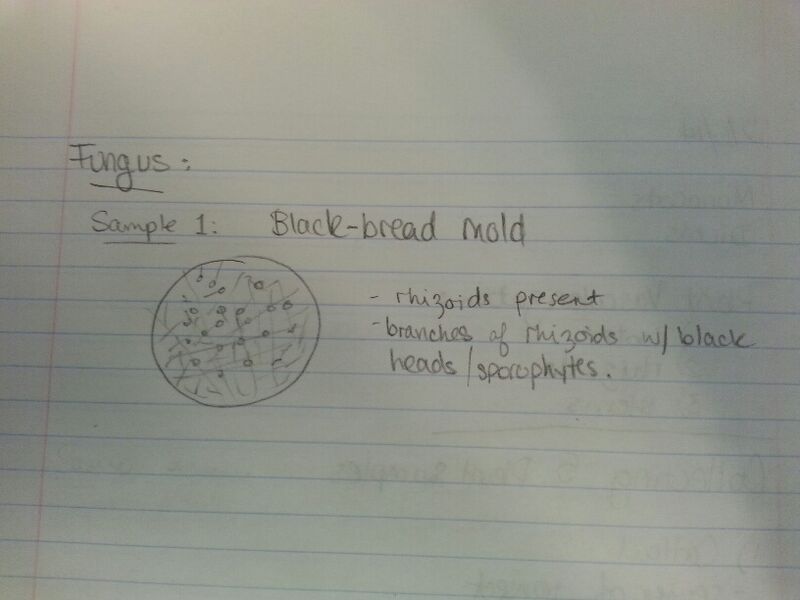 Fungus:
Sample 1: Black-bread mold
- rhizoids present
- branches of rhizoids w/ black
heads/sporophytes.